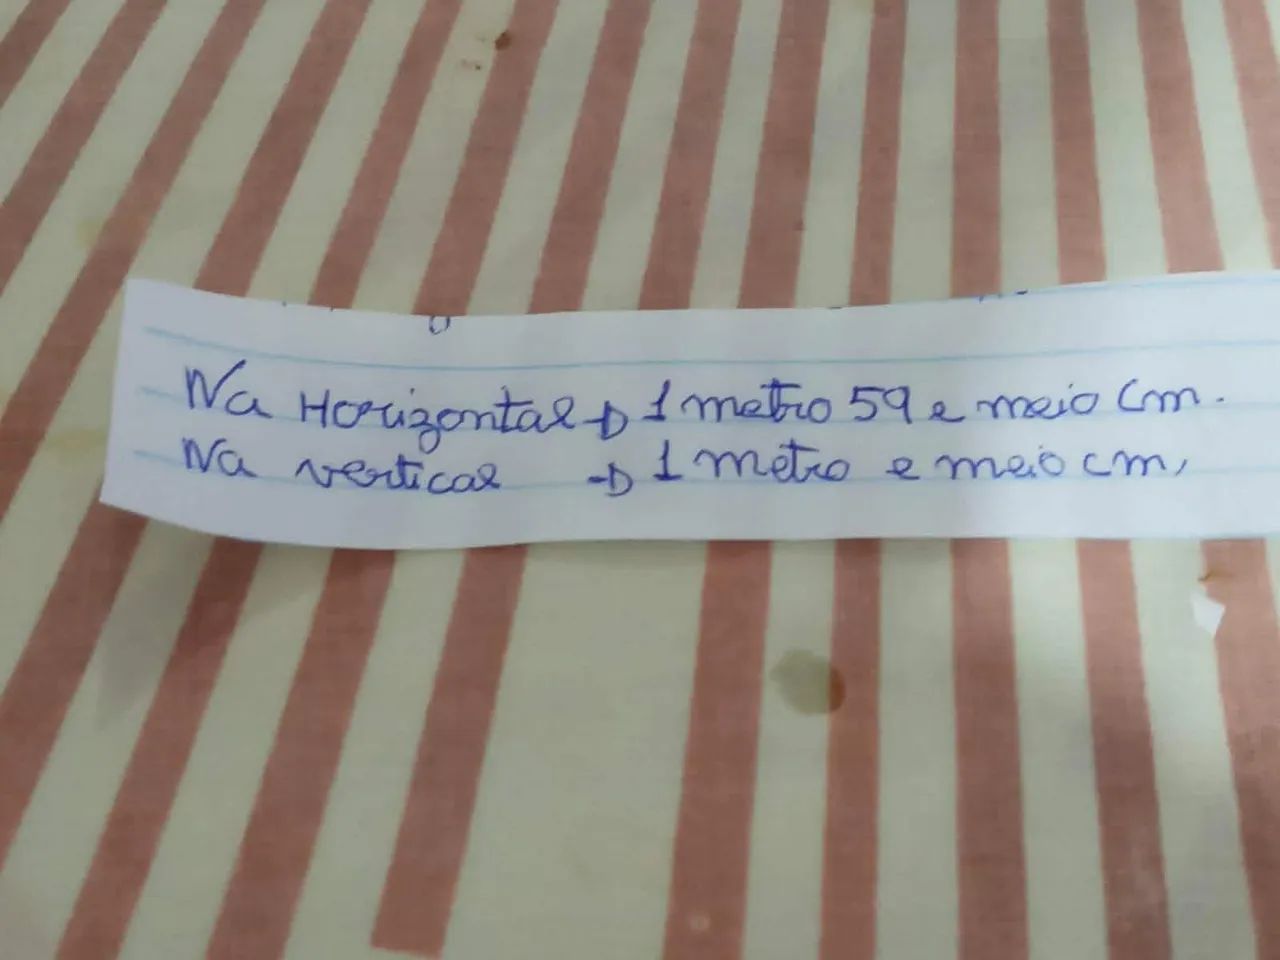 Na Horizontal → 1 metro 59 e meio cm.
Na vertical → 1 metro e meio cm,